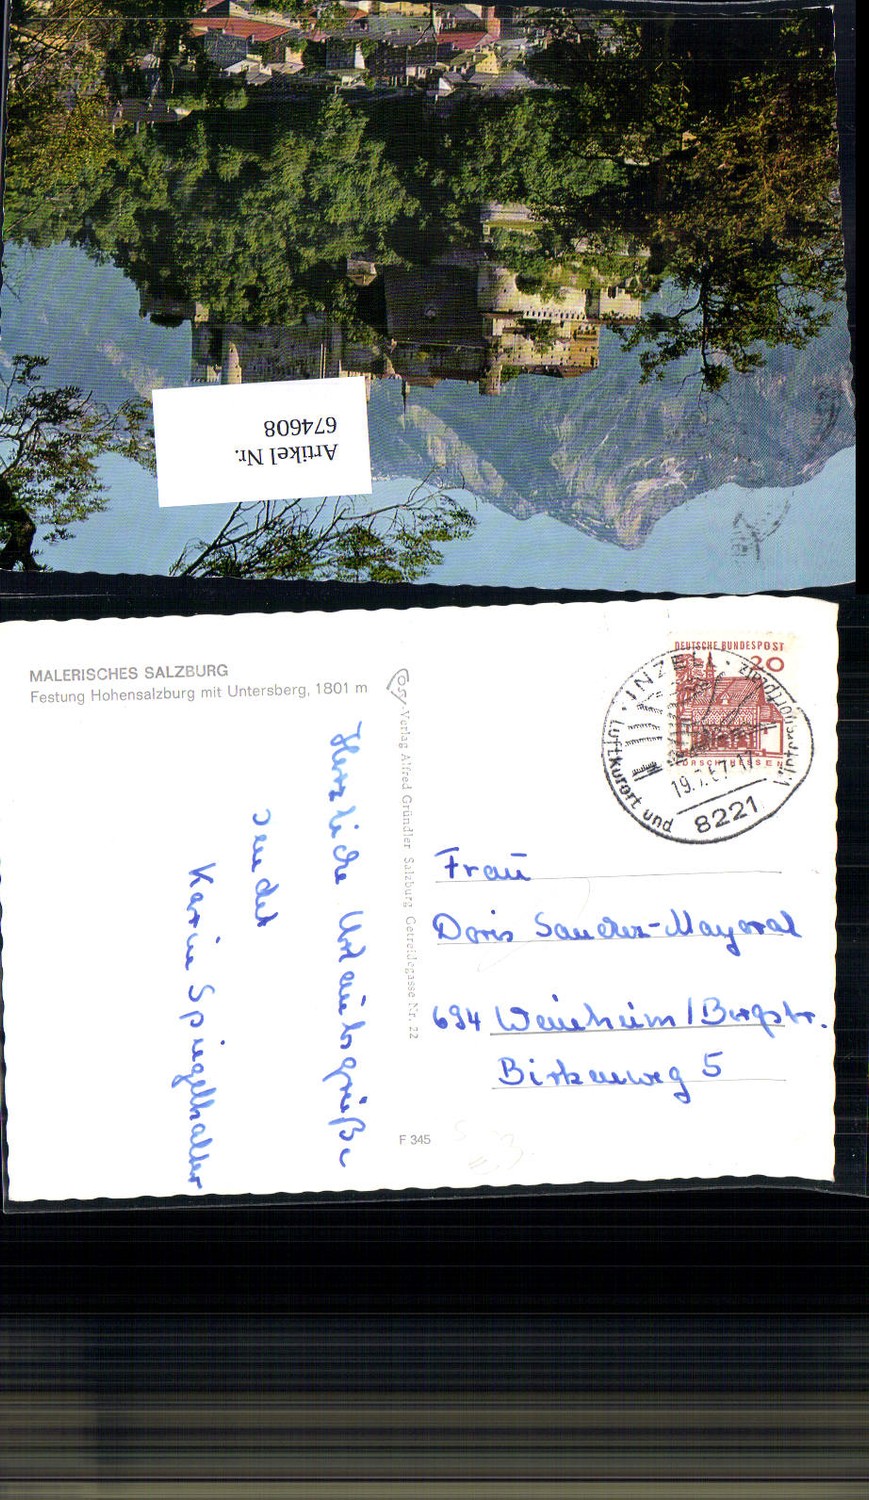 Artikel Nr.
674608
MALERISCHES SALZBURG
Festung Hohensalzburg mit Untersberg, 1801 m
Cosy-Verlag Alfred Gründler Salzburg Getreidegasse Nr. 22
DEUTSCHE BUNDESPOST
20
LORSCH HESSEN
INZELL
19.7.67-17
Luftkurort und Wintersportplatz
8221
Herzliche Urlaubsgrüße
sendet
Karin Spiegelhalter
Frau
Doris Sanchez-Mayoral
694 Weinheim/Bergstr.
Birkenweg 5
F 345